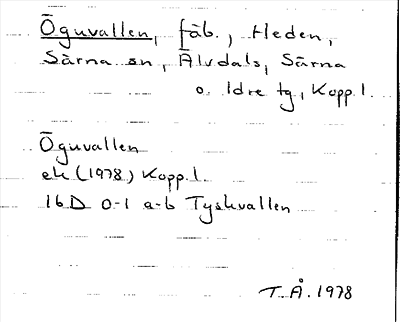 Öguvallen, fäb., Heden,
Särna sn, Älvdals, Särna
o. Idre tg, Kopp. l.
Öguvallen
ek (1978) Kopp. l.
16D 0-1 a-b Tyskvallen
T. Å. 1978